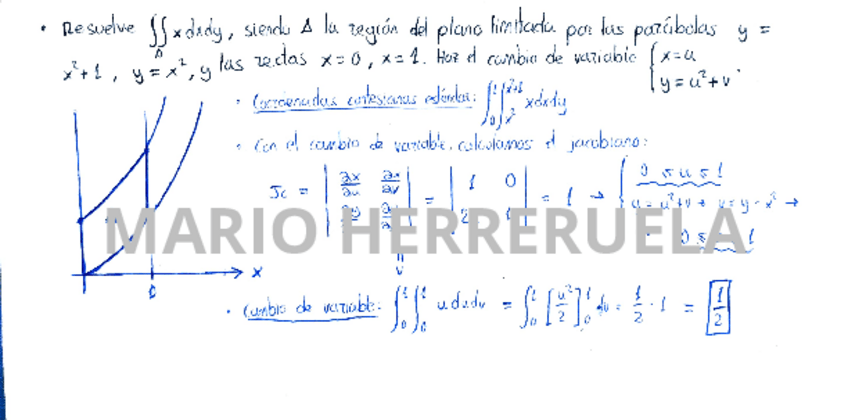 • Resuelve ∬_Δ x dxdy, siendo Δ la región del plano limitada por las parábolas y =
x²+1, y = x², y las rectas x=0, x=1. Haz el cambio de variable { x=u
y=u²+v
• Coordenadas cartesianas : ∫₀¹∫ₓ²^(x²+1) x dxdy
• Con el cambio de variable, calculamos el jacobiano:
Jc = | ∂x/∂u ∂x/∂v | = | 1 0 | = 1 → { 0 ≤ u ≤ 1
= u²+v → v = y - x² →
MARIO HERRERUELA
x
• Cambio de variable: ∫₀¹∫₀¹ u dudv = ∫₀¹ [u²/2]₀¹ dv = 1/2 · 1 = 1/2